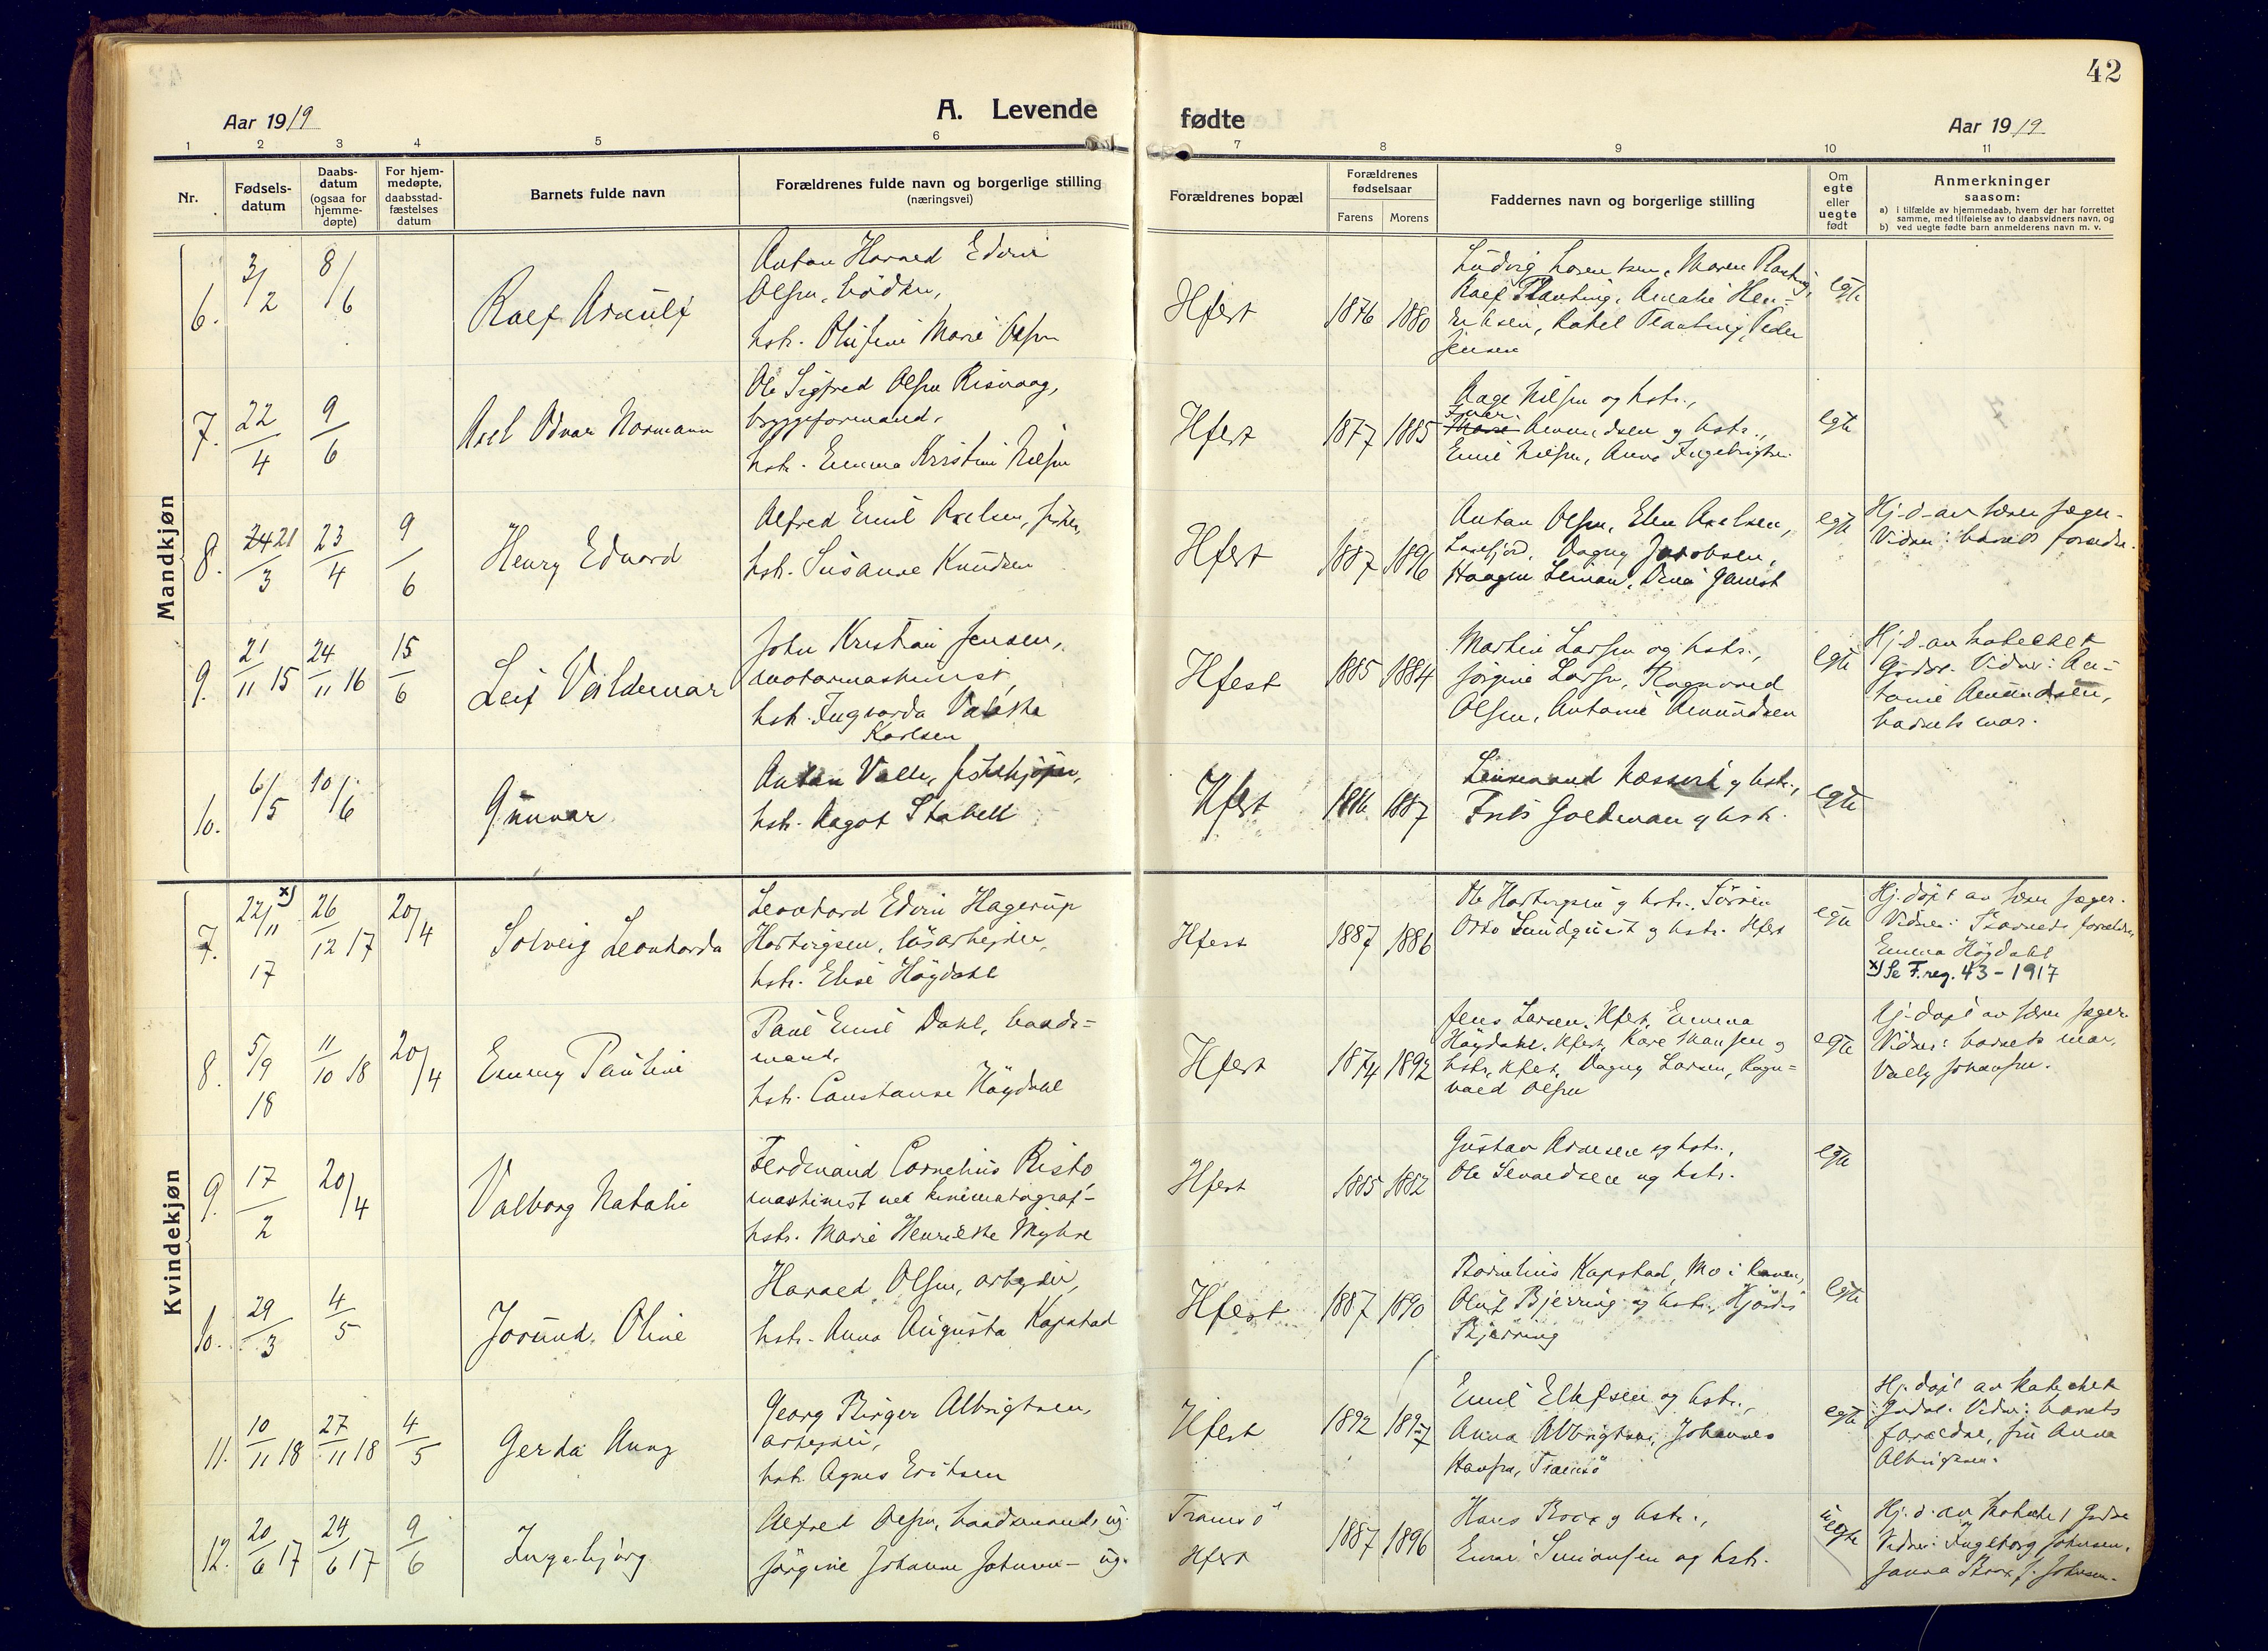 42
Aar 1919
A. Levende
fødte
Aar 1919
1 2 3 4 5 6 7 8 9 10 11
Nr.
Fødsels-
datum
Daabs-
datum
(ogsaa for
hjemme-
døpte)
For hjem-
medøpte,
daabsstad-
fæstelses
datum
Barnets fulde navn
Forældrenes fulde navn og borgerlige stilling
(næringsvei)
Forældrenes bopæl
Forældrenes
fødselsaar
Farens Morens
Faddernes navn og borgerlige stilling
Om
egte
eller
uegte
født
Anmerkninger
saasom:
a) i tilfælde av hjemmedaab, hvem der har forrettet
samme, med tilføielse av to daabsvidners navn, og
b) ved uegte fødte barn anmelderens navn m. v.
Mandkjøn
6.
3/2
8/6
Rolf Arnulf
Anton Harald Edvin
Olsen, bödker,
hstr. Olufine Marie Olsen
Hfest
1876 1880
Ludvig Lorentsen, Maren Planting,
Rolf Planting, Amalie Hen-
riksen, Rakel Planting, Peder
Jensen
egte
7.
22/4
9/6
Axel Odvar Normann
Ole Sigfred Olsen Risvaag,
bryggeformand,
hstr. Emma Kristine Nilsen
Hfest
1877 1885
Aage Nilsen og hstr.,
Ivar
Marie Amundsen og hstr.,
Emil Nilsen, Anna Ingebrigtsen
egte
8.
24 21/3
23/4
9/6
Henry Edvard
Alfred Emil Axelsen, fisker,
hstr. Susanne Knudsen
Hfest
1887 1896
Anton Olsen, Elen Axelsen,
Laxefjord, Dagny Jakobsen,
Haagen Leman, Dina Gamst
egte
Hj-d-av sören Jæger.
Vidner: barnets forældre.
9.
21/11 15
24/11 16
15/6
Leif Valdemar
John Kristian Jensen,
motormaskinist,
hstr. Ingvarda Valeska
Karlsen
Hfest
1885 1884
Martin Larsen og hstr.,
Jörgine Larsen, Ragnvald
Olsen, Antonie Amundsen
egte
Hj-d-av kateket
Gjödsr. Vidner: An-
tonie Amundsen,
barnets mor.
10.
6/5
10/6
Gunvar
Anton Valle, fiskekjöper,
hstr. Aagot Stabell
Hfest
1887
og hstr.,
Frits Goldman og hstr.
egte
Kvindekjøn
7.
22/11 x)
17
26/12 17
20/4
Solveig Leonharda
Leonhard Edvin Hagerup
Hartvigsen, lösarbeider,
hstr. Elise Högdahl
Hfest
1887 1886
Ole Hartvigsen og hstr. Sörvær
Otto Lundquist og hstr. Hfest
egte
Hj. döpt av sören Jæger.
Vidner: Barnets forældre,
Emma Högdahl
x) Se F.reg. 43 – 1917
8.
5/9
18
11/10 18
20/4
Emmy Pauline
Paul Emil Dahl, baads-
mand,
hstr. Constanse Högdahl
Hfest
1874 1892
Jens Larsen, Hfest, Emma
Högdahl, Hfest, Kåre Hansen og
hstr., Hfest, Dagny Larsen, Ragn-
vald Olsen
egte
Hj-döpt av sören Jæger.
Vidner: barnets mor,
Vally Johansen.
9.
17/2
20/4
Valborg Natalie
Ferdinand Cornelius Risto,
maskinist ved kinematograf-
hstr. Marie Henriette Myhre
Hfest
1885 1882
Gustav Arnesen og hstr.,
Ole Sivaldsen og hstr.
egte
10.
29/3
4/5
Jorund Oline
Harald Olsen, arbeider,
hstr. Anna Augusta Kapstad
Hfest
1887 1890
Bornelius Kapstad, Mo i Ranen,
Oluf Bjerring og hstr., Hjördis
Bjerring
egte
11.
10/11 18
27/11 18
4/5
Gerda Anny
Georg Birger Albrigtsen,
arbeider,
hstr. Agnes Eriksen
Hfest
1892 1897
Emil Ellefsen og hstr.,
Anna Albrigtsen, Johannes
Hansen, Tromsö
egte
Hj. döpt av kateket
Gjödsr. Vidner: barnets
forældre, fru Anna
Albrigtsen.
12.
20/6 17
24/6 17
9/6
Ingebjörg
Alfred Olsen, baadsmand, ug.
Jörgine Johanne Johnsen – ug.
Tromsö
Hfest
1887 1896
Hans Brox og hstr.,
Simonsen og hstr.
uegte
Hj. d. av kateket
Vidner: Ingeborg Johnsen,
Brox f. Johnsen.